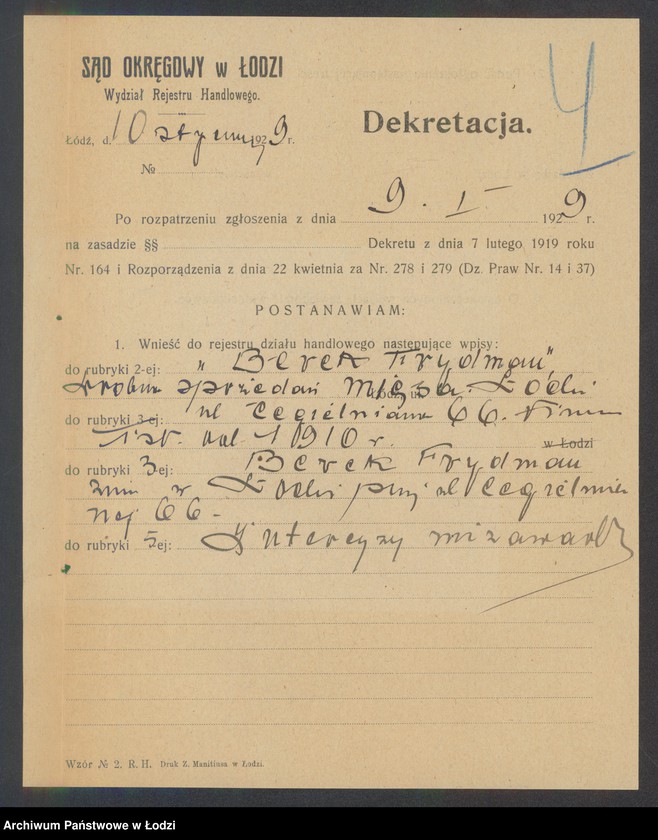 SĄD OKRĘGOWY w ŁODZI
Wydział Rejestru Handlowego.
Łódź, d. 10 stycznia 1929 r.
№
Dekretacja.
4
Po rozpatrzeniu zgłoszenia z dnia 9. I 1929 r.
na zasadzie §§ Dekretu z dnia 7 lutego 1919 roku
Nr. 164 i Rozporządzenia z dnia 22 kwietnia za Nr. 278 i 279 (Dz. Praw Nr. 14 i 37)
POSTANAWIAM:
1. Wnieść do rejestru działu handlowego następujące wpisy:
do rubryki 2-ej: „Berek Frydman”
drobna sprzedaż mięsa. Łódź
do rubryki 3-ej: ul Cegielniana 66. Firma
ist. od 1910 r. w Łodzi
do rubryki 3-ej: Berek Frydman
zam w Łodzi przy ul Cegielnia
nej 66 -
do rubryki 5-ej: Intercyzy nie zawarł
Wzór № 2. R. H. Druk Z. Manitiusa w Łodzi.
Archiwum Państwowe w Łodzi